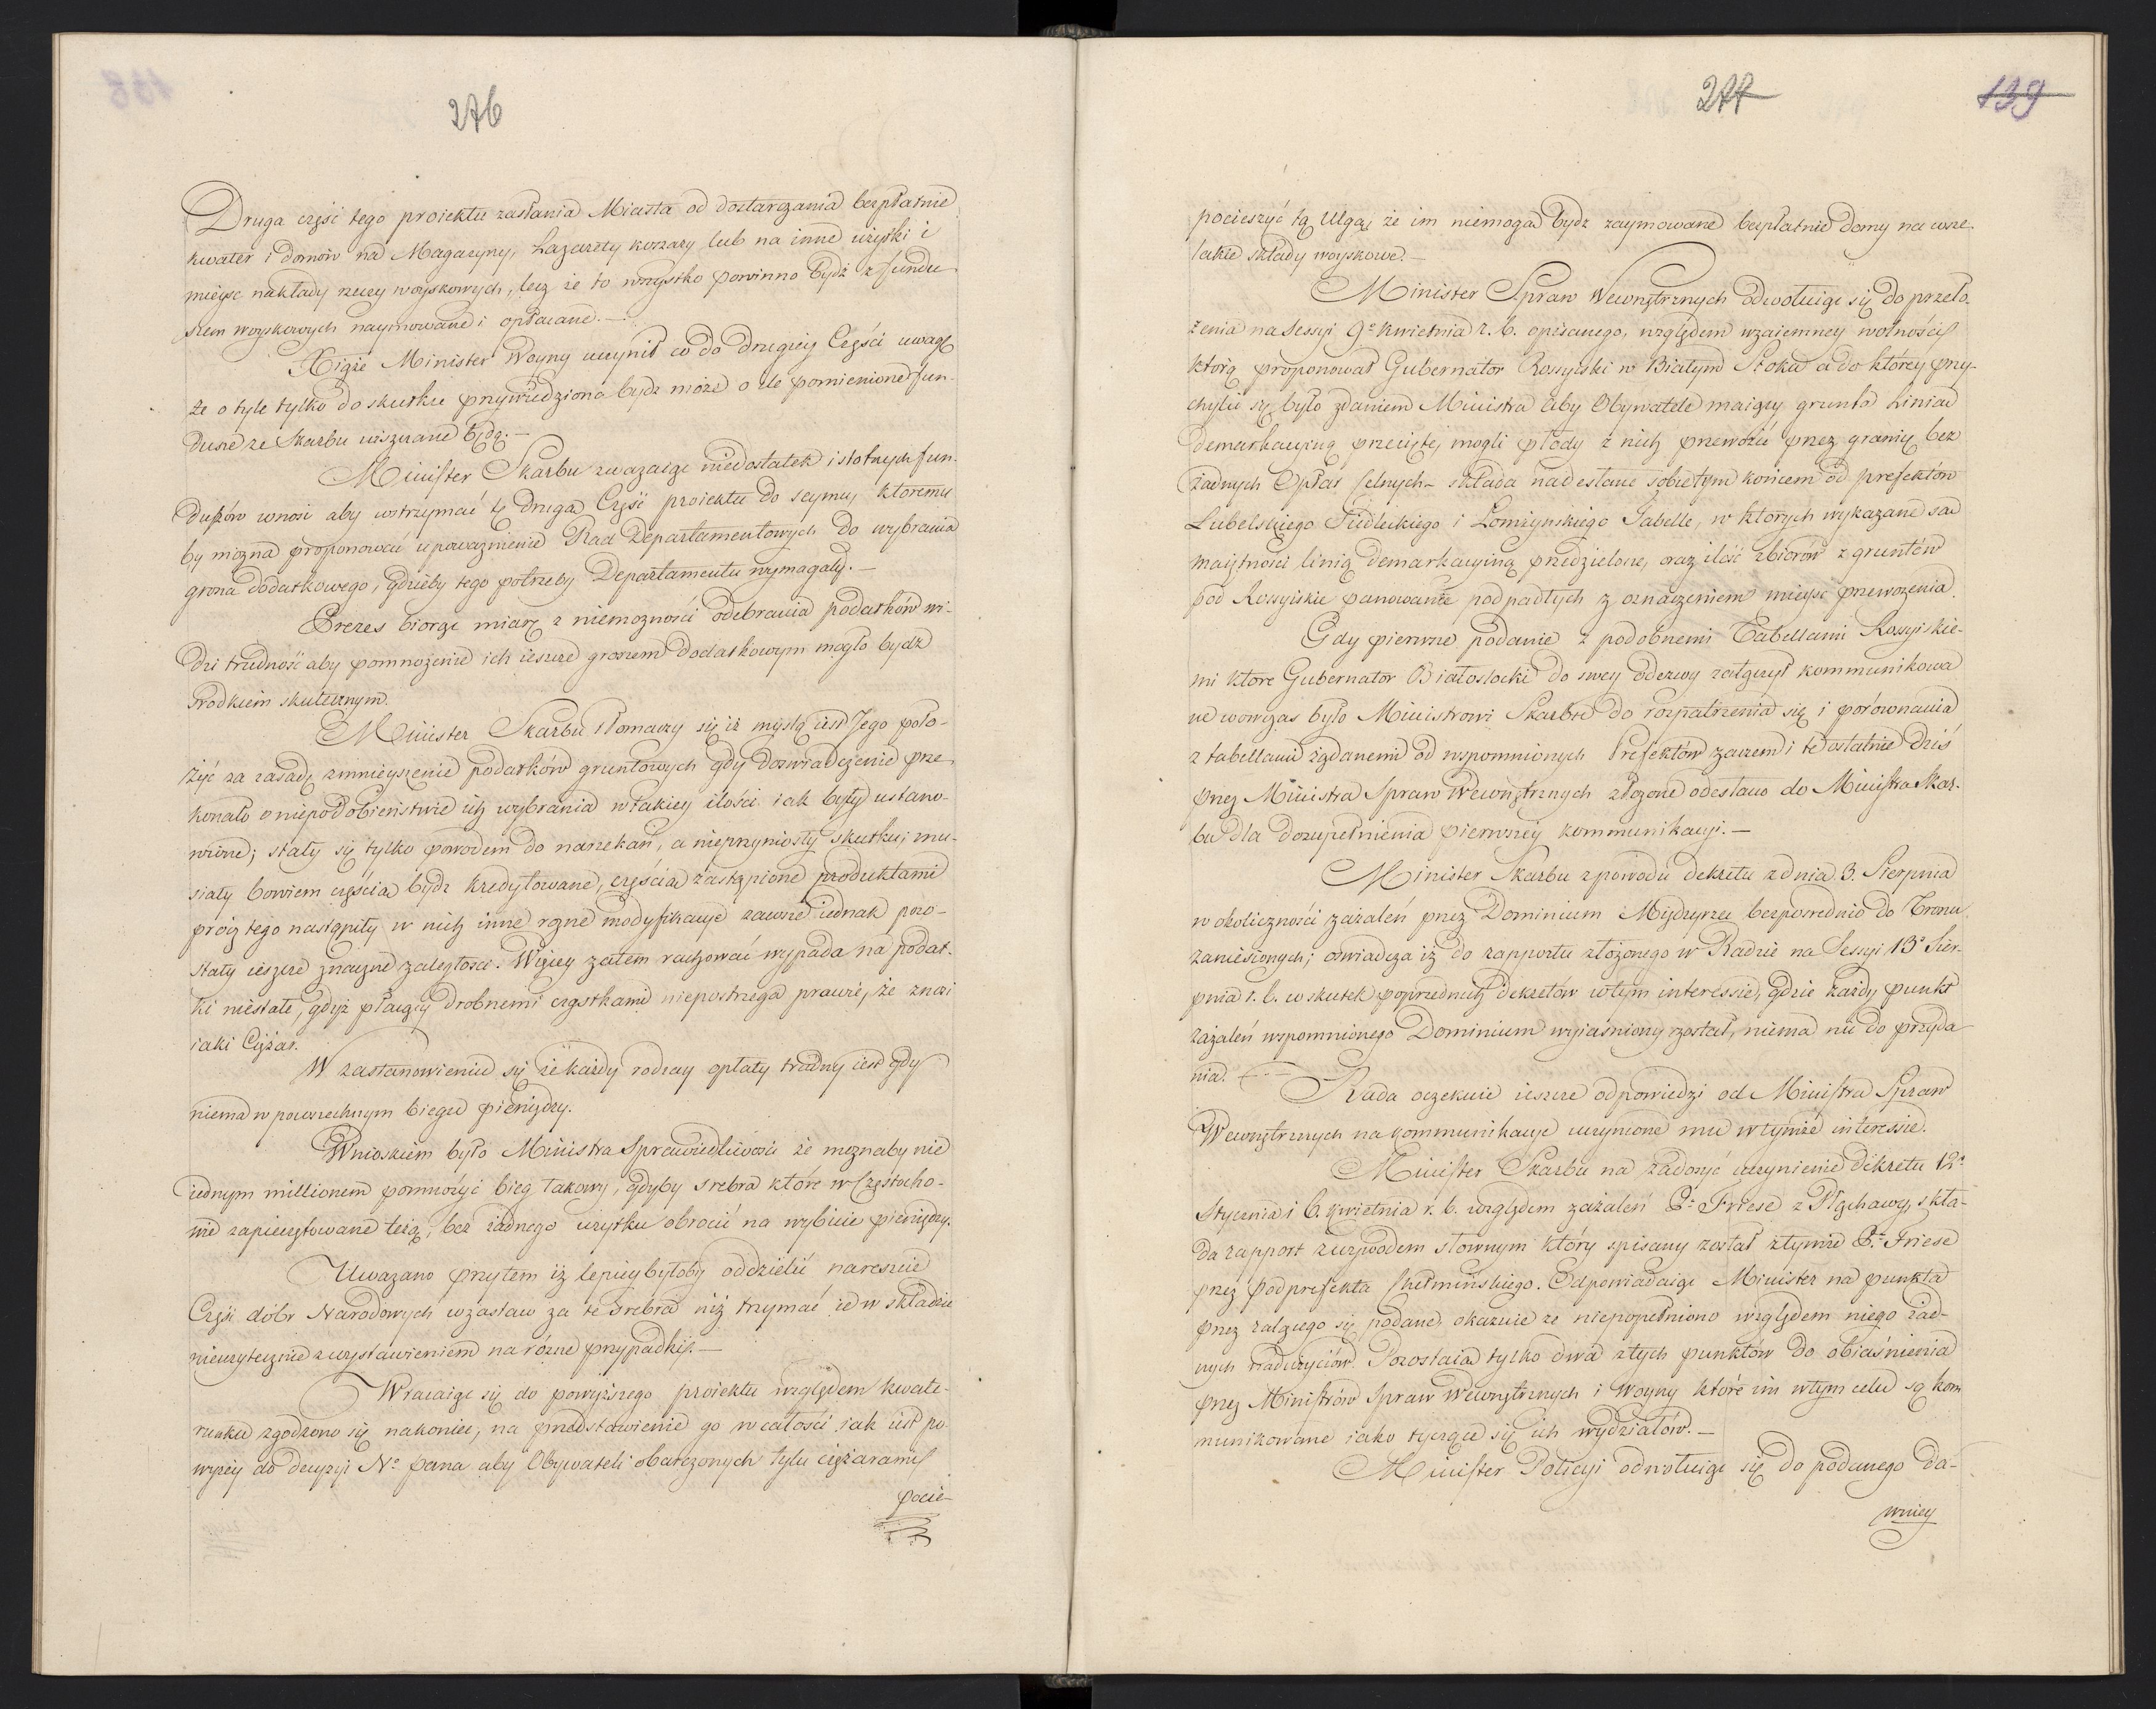 276
Druga część tego proiektu zasłania Miasta od dostarczania bezpłatnie
kwater i domów na Magazyny, Lazarety koszary lub na inne użytki i
mieysc nakłady rzeczy woyskowych, lecz że to wszystko powinno bydź z fundu-
szem woyskowych naymowane i opłacane.—
Xiąże Minister Woyny uczynił co do drugiey Części uwagę
że o tyle tylko do skutku przywiedziona bydz może o ile pomienione fun-
dusze ze Skarbu uiszczane będą.—
Minister Skarbu zważaiąc niedostatek istotnych fun-
duszów wnosi aby wstrzymać tę drugą Część proiektu do seymu, ktoremu
by można proponować upoważnienie Rad Departamentowych do wybrania
grosza dodatkowego, gdzieby tego potrzeby Departamentu wymagały.—
Prezes biorąc miarę z niemożności odebrania podatków wi-
dzi trudność aby pomnożenie ich ieszcze groszem dodatkowym mogło bydź
srodkiem skutecznym.
Minister Skarbu tłomaczy się iż myślą iest Jego poło-
żyć za zasadę zmnieyszenie podatków gruntowych gdy doswiadczenie prze-
konało o niepodobieństwie ich wybrania w takiey ilości iak były ustano-
wione; stały się tylko powodem do narzekań, a nieprzyniosły skutku; mu-
siały bowiem częścia bydz kredytowane, częścia zastąpione produktami
prócz tego nastąpiły w nich inne rożne modyfikacye zawsze iednak pozo-
stały ieszcze znaczne zaległości. Więcey zatem rachować wypada na podat-
ki niestałe, gdyż płacący drobnemi cząstkami niepostrzega prawie, że znosi
iaki Ciężar.
W zastanowieniu się że każdy rodzay opłaty trudny iest gdy
niema w powszechnym biegu pieniędzy.
Wnioskiem było Ministra Sprawiedliwości że możnaby nie
iednym millionem pomnożyć bieg takowy, gdyby srebra które w Częstocho-
wie zapieczętowane leżą, bez żadnego użytku obrocić na wybicie pieniędzy.
Uważano przytem iż lepiey byłoby oddzielić nareszcie
Część dóbr Narodowych w zastaw za te srebra niż trzymać ie w składzie
nieużytecznie z wystawieniem na różne przypadki.—
Wracaiąc się do powyższego proiektu względem kwate-
runku zgodzono się nakoniec, na przedstawienie go w całości iak iest po-
wyżey do decyzyi Nº pana aby Obywateli obarczonych tylu ciężarami
pocie-
277
139
pocieszyć tą Ulgą, że im niemogą bydz zaymowane bezpłatnie domy na wsze-
lakie składy woyskowe.—
Minister Spraw Wewnętrznych odwołuiąc się do przeło-
żenia na Sessyi 9º Kwietnia r. b. opisanego, względem wzaiemney wolności
którą proponował Gubernator Rossyiski w Białym Stoku a do ktorey przy-
chylić się było zdaniem Ministra aby Obywatele maiący grunta Linia
demarkacyiną przeciętę, mogli płody z nich przewozić przez granicę bez
żadnych Opłat Celnych— składa nadesłane sobie tym końcem od prefektów
Lubelskiego Siedleckiego i Łomżynskiego Tabelle, w ktorych wykazane sa
maiętności linią demarkacyiną przedzielone, oraz ilość zbiorów z gruntów
pod Rossyiskie panowanie podpadłych z oznaczeniem mieysc przewożenia.
Gdy pierwsze podanie z podobnemi Tabellami Rossyiskie-
mi ktore Gubernator Białostocki do swey odezwy załączył kommunikowa
ne wowczas było Ministrowi Skarbu do rozpatrzenia się i porównania
z tabellami żądanemi od wspomnionych Prefektów zaczem i te ostatnie dziś
przez Ministra Spraw Wewnętrznych złożone odesłano do Ministra Skar-
bu dla dozupełnienia pierwszey kommunikacyi.—
Minister Skarbu z powodu dekretu z dnia 3. Sierpnia
w okoliczności zażaleń przez Dominium Międzyrzec bezposrednio do Tronu
zaniesionych; oświadcza iż do rapportu złożonego w Radzie na Sessyi 13º Sier-
pnia r. b. w skutek poprzednich dekretów w tym interessie, gdzie każdy punkt
zażaleń wspomnionego Dominium wyiaśniony został, niema nic do przyda-
nia.—
Rada oczekuie ieszcze odpowiedzi od Ministra Spraw
Wewnętrznych na kommunikacye uczynione mu w tymże interessie.
Minister Skarbu na zadosyć uczynienie dekretu 12º
Stycznia i 6. Kwietnia r. b. względem zażaleń Pº Friese z Płąchawy, skła-
da rapport z wywodem słownym który spisany został z tymże Pº Friese
przez podprefekta Chełmińskiego. Odpowiadaiąc Minister na punkta
przez żalącego się podane, okazuie że niepopełniono względem niego żad-
nych nadużyciów. Pozostaią tylko dwa z tych punktów do obiaśnienia
przez Ministrów Spraw Wewnętrznych i Woyny które im w tym celu są kom-
munikowane iako tyczące się ich wydziałów.—
Minister Policyi odwołuiąc się do podanego da-
wniey